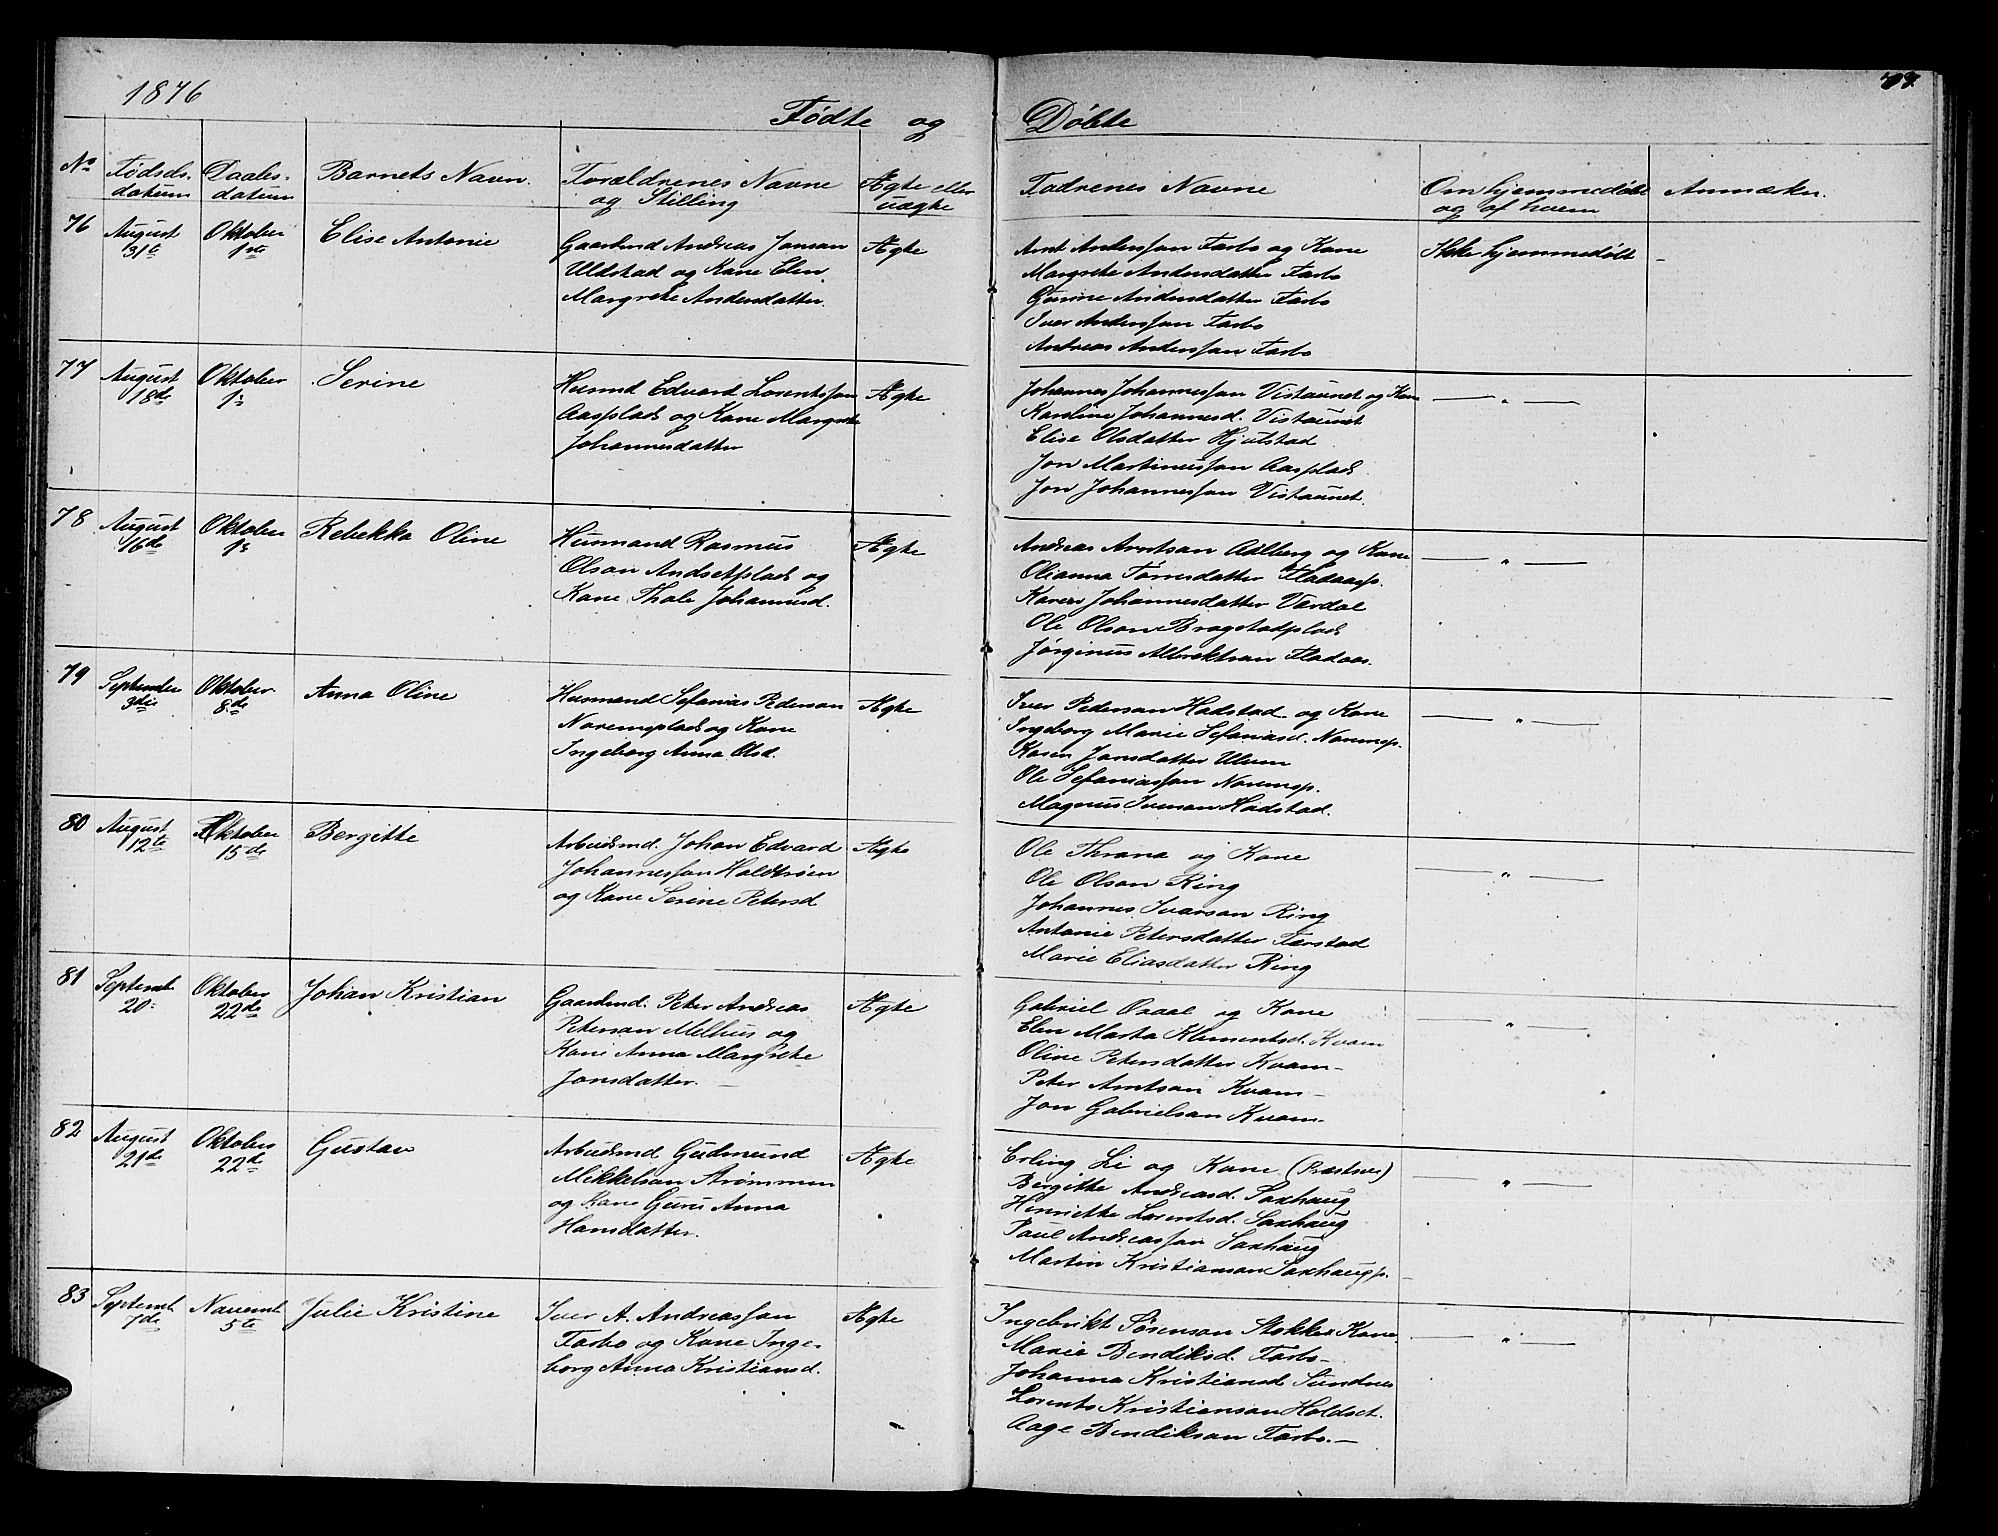 1876
Fødte og Døbte
No
Fødsels-
datum
Daabs-
datum
Barnets Navn.
Forældrenes Navne
og Stilling
Ægte eller
uægte
Fadrenes Navne
Om hjemmedøbt
og af hvem
Anmærkn.
76
August
31te
Oktober
1ste
Elise Antonie
Gaardmd Andreas Jonsan
Uldstad og Kone Elen
Margrete Andersdatter.
Ægte
Arnt Anderssan Farbo og Kone
Margrete Andersdatter Farbo
Andersdatter Farbo
Iver Anderssan Farbo
Andreas Anderssan Farbo
Ikke hjemmedøbt
77
August
18de
Oktober
1s
Serine
Husmd Edvard Lorentssan
Aasplads og Kone Margrete
Johannesdatter
Ægte
Johannes Johannessan Vistaunet og Kone
Karoline Johannesd. Vistaunet
Elise Olsdatter Hjulstad
Jon Martinussan Aasplads
Jon Johannessan Vistaunet
— " —
78
August
16de
Oktober
1s
Rebekka Oline
Husmand Rasmus
Olsan Andsetplads og
Kone Thale Johannesd.
Ægte
Andreas Arntsan Aalberg og Kone
Olianna Tørresdatter Fladaasp.
Karen Johannesdatter Værdal
Ole Olson Bragstadplads
Jørginus Albrektsan Fladaas.
— " —
79
September
3die
Oktober
8de
Anna Oline
Husmand Sefanias Pederson
Noremsplads og Kone
Ingeborg Anna Olsd.
Ægte
Iver Pedersan Hadstad og Kone
Ingeborg Marie Sefaniasd. Noremsp.
Karen Jonsdatter Ulven
Ole Sefaniassan Noremsp.
Magnus Iversan Hadstad.
— " —
80
August
12te
Oktober
15de
Bergitte
Arbeidsmd. Johan Edvard
Johannessan Holdtrøen
og Kone Serine Petersd
Ægte
Ole Thrana og Kone
Ole Olsan Ring
Johannes Ivarsan Ring
Antonie Petersdatter Færstad
Marie Eliasdatter Ring
— " —
81
Septemb.
20:
Oktober
22de
Johan Kristian
Gaardmd. Peter Andreas
Petersan Melhus og
Kone Anna Margrete
Jonsdatter. —
Ægte
Gabriel Oraal og Kone
Elen Marta Klementsd. Kvam
Oline Petersdatter Kvam —
Peter Arntsan Kvam —
Jon Gabrielsan Kvam —
— " —
82
August
21de
Oktober
22de
Gustav
Arbeidsmd Gudmund
Mikkelsan Strømmen
og Kone Guru Anna
Hansdatter.
Ægte
Erling Li og Kone (Præstnes)
Bergitte Andreasd. Saxhaug
Henriette Lorentsd. Saxhaug
Paul Andreassan Saxhaug
Martin Kristiansan Saxhaugp. —
— " —
83
Septemb.
7de
Novemb.
5te
Julie Kristine
Iver A. Andreassan
Farbo og Kone Inge-
borg Anna Kristiansd.
Ægte
Ingebrikt Sørensan Stokke & Kone
Marie Bendiksd. Farbo —
Johanna Kristiansd Sundnes
Lorents Kristiansan Holdset.
Aage Bendiksan Farbo. —
— " —